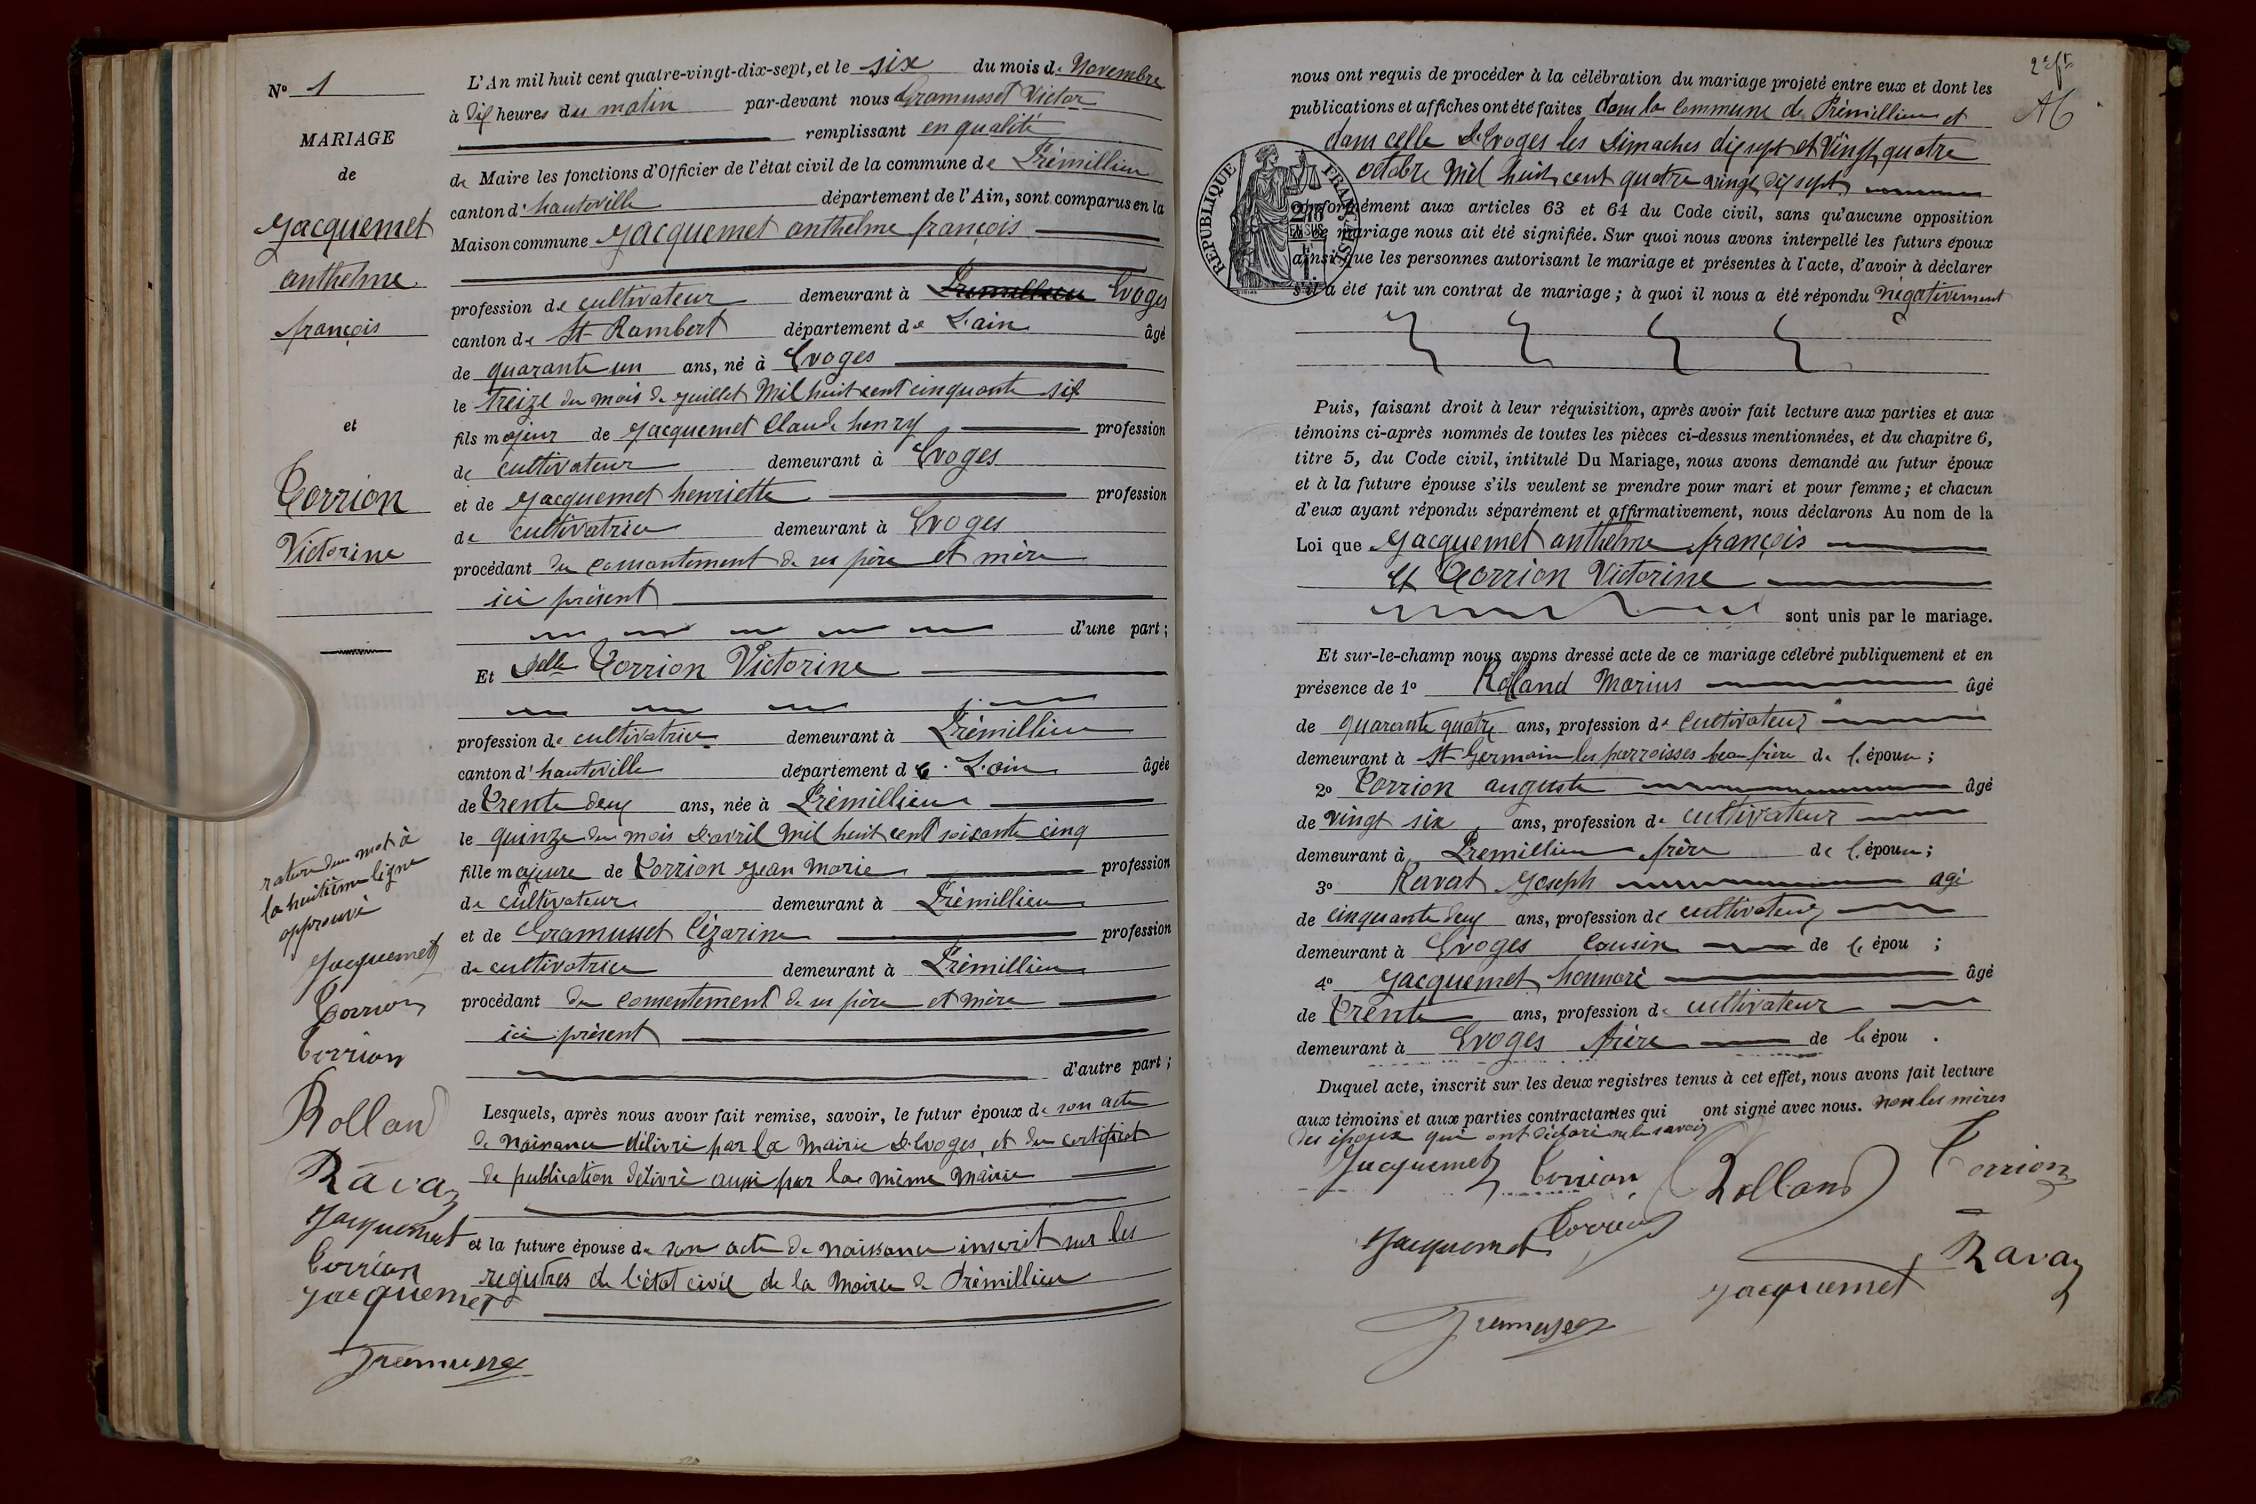 N° 1
MARIAGE
de
Jacquemet
anthelme
françois
et
Corrion
Victorine
rature d'un mot à
la huitième ligne
approuvé
Jacquemet
Corrion
Corrion
Rolland
Ravat
Jacquemet
Corrion
Jacquemet
Gramusset
L'An mil huit cent quatre-vingt-dix-sept, et le six du mois de Novembre
à dix heures du matin par-devant nous Gramusset Victor
remplissant en qualité
de Maire les fonctions d'Officier de l'état civil de la commune de Prémillieu
canton d'hauteville département de l'Ain, sont comparus en la
Maison commune Jacquemet anthelme françois
profession de cultivateur demeurant à Prémillieu Evoges
canton de St Rambert département de L'ain âgé
de quarante un ans, né à Evoges
le treize du mois de juillet Mil huit cent cinquante six
fils majeur de Jacquemet Claude henry profession
de cultivateur demeurant à Evoges
et de Jacquemet henriette profession
de cultivatrice demeurant à Evoges
procédant du consantement de ses père et mère
ici présent
d'une part;
Et Delle Corrion Victorine
profession de cultivatrice demeurant à Prémillieu
canton d'hauteville département de L'ain âgée
de Trente deux ans, née à Prémillieu
le quinze du mois d'avril mil huit cent soixante cinq
fille majeure de Corrion Jean Marie profession
de cultivateur demeurant à Prémillieu
et de Gramusset Cézarine profession
de cultivatrice demeurant à Prémillieu
procédant du consentement de ses père et mère
ici présent
d'autre part;
Lesquels, après nous avoir fait remise, savoir, le futur époux de son acte
de naissance délivré par la Mairie d'Evoges, et du certificat
de publication délivré aussi par la même Mairie
et la future épouse de son acte de naissance inscrit sur les
registres de l'état civil de la Mairie de Prémillieu
nous ont requis de procéder à la célébration du mariage projeté entre eux et dont les
publications et affiches ont été faites dans la commune de Prémillieu et
dans celle d'Evoges les Dimaches dix sept et Vingt quatre
octobre Mil huit cent quatre vingt dix sept
conformément aux articles 63 et 64 du Code civil, sans qu'aucune opposition
à ce mariage nous ait été signifiée. Sur quoi nous avons interpellé les futurs époux
ainsi que les personnes autorisant le mariage et présentes à l'acte, d'avoir à déclarer
s'il a été fait un contrat de mariage; à quoi il nous a été répondu négativement
RÉPUBLIQUE FRANÇAISE
Puis, faisant droit à leur réquisition, après avoir fait lecture aux parties et aux
témoins ci-après nommés de toutes les pièces ci-dessus mentionnées, et du chapitre 6,
titre 5, du Code civil, intitulé Du Mariage, nous avons demandé au futur époux
et à la future épouse s'ils veulent se prendre pour mari et pour femme; et chacun
d'eux ayant répondu séparément et affirmativement, nous déclarons Au nom de la
Loi que Jacquemet anthelme françois
et Corrion Victorine
sont unis par le mariage.
Et sur-le-champ nous avons dressé acte de ce mariage célébré publiquement et en
présence de 1° Rolland Marius âgé
de quarante quatre ans, profession de cultivateur
demeurant à St Germain les parroisses beau frère de l'épouse;
2° Corrion auguste âgé
de vingt six ans, profession de cultivateur
demeurant à Prémillieu frère de l'épouse;
3° Ravat Joseph agé
de cinquante deux ans, profession de cultivateur
demeurant à Evoges Cousin de l'épou ;
4° Jacquemet honnoré âgé
de Trente ans, profession de cultivateur
demeurant à Evoges frère de l'épou .
Duquel acte, inscrit sur les deux registres tenus à cet effet, nous avons fait lecture
aux témoins et aux parties contractantes qui ont signé avec nous. non les mères
des époux qui ont déclaré ne le savoir
Jacquemet Corrion Rolland Corrion
Jacquemet Corrion
Jacquemet Ravat
Gramusset